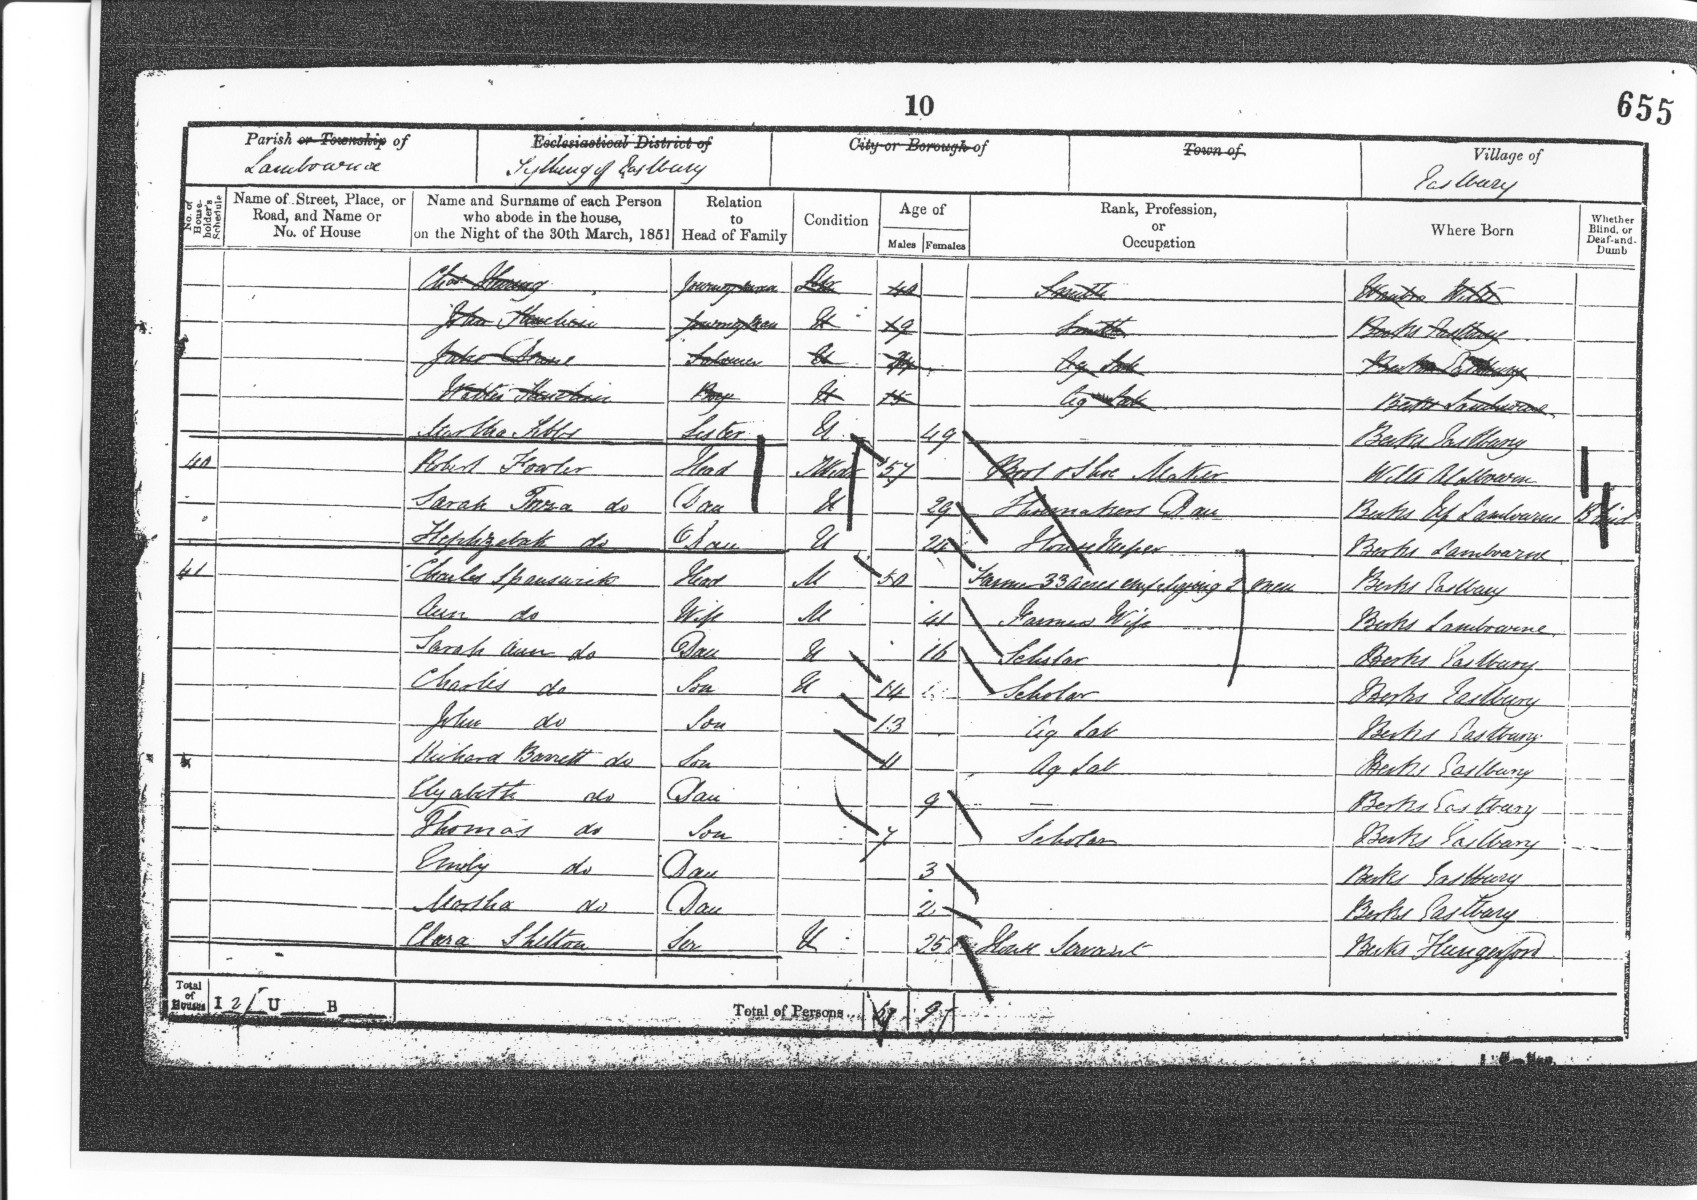 10
655
Parish or Township of
Ecclesiastical District of
City or Borough of
Town of
Village of
Lambourne
Tything of Eastbury
Eastbury
No. of House-holder's Schedule
Name of Street, Place, or Road, and Name or No. of House
Name and Surname of each Person who abode in the house, on the Night of the 30th March, 1851
Relation to Head of Family
Condition
Age of
Males Females
Rank, Profession, or Occupation
Where Born
Whether Blind, or Deaf-and-Dumb
Chas Journeyman 40 Smith Wilts
John Journeyman U 19 Smith Berks Eastbury
U Ag Lab Berks Eastbury
Walter Boy U 15 Ag Lab Berks Lambourne
Martha Sister U 49 Berks Eastbury
40 Robert Fowler Head Widr 57 Boot & Shoe Maker Wilts Aldbourn
Sarah do Dau U 29 Shoemakers Dau Berks Up Lambourne Blind
Hephzebah do Dau U 24 House Keeper Berks Lambourne
41 Charles Spanswick Head M 50 Farmer 33 acres employing 2 men Berks Eastbury
Ann do Wife M 41 Farmers Wife Berks Lambourne
Sarah Ann do Dau U 16 Scholar Berks Eastbury
Charles do Son U 14 Scholar Berks Eastbury
John do Son 13 Ag Lab Berks Eastbury
Richard Barrett do Son 11 Ag Lab Berks Eastbury
Elizabeth do Dau 9 — Berks Eastbury
Thomas do Son 7 Scholar Berks Eastbury
Emily do Dau 3 Berks Eastbury
Martha do Dau 2 Berks Eastbury
Clara Shelton Ser U 25 House Servant Berks Hungerford
Total of Houses I 2 U B
Total of Persons